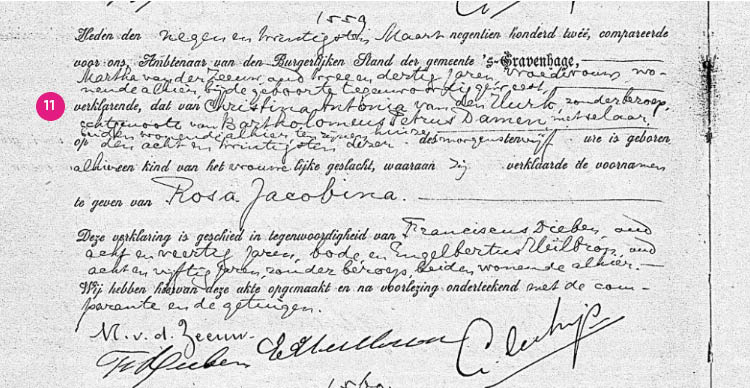 1559
Heden den negen en twintigsten Maart negentien honderd twee, compareerde
voor ons, Ambtenaar van den Burgerlijken Stand der gemeente 's-Gravenhage,
Martha van der Zeeuw, oud twee en dertig jaren, vroedvrouw, wo-
nende alhier, bij de geboorte tegenwoordig geweest,
11
verklarende, dat van Christina Antonia van den Hurk, zonder beroep,
echtgenoote van Bartholomeus Petrus Damen, metselaar
beiden wonende alhier te zijnen huize
op den acht en twintigsten dezer des morgens te vijf ure is geboren
alhier een kind van het vrouwelijke geslacht, waaraan zij verklaarde de voornamen
te geven van Rosa Jacobina.
Deze verklaring is geschied in tegenwoordigheid van Franciscus Dieben, oud
acht en veertig jaren, bode en Engelbertus Heilbron, oud
acht en vijftig jaren, zonder beroep, beiden wonende alhier.
Wij hebben hiervan deze akte opgemaakt en na voorlezing onderteekend met de com-
parante en de getuigen.
M. v. d. Zeeuw.
Fr Dieben
1560.